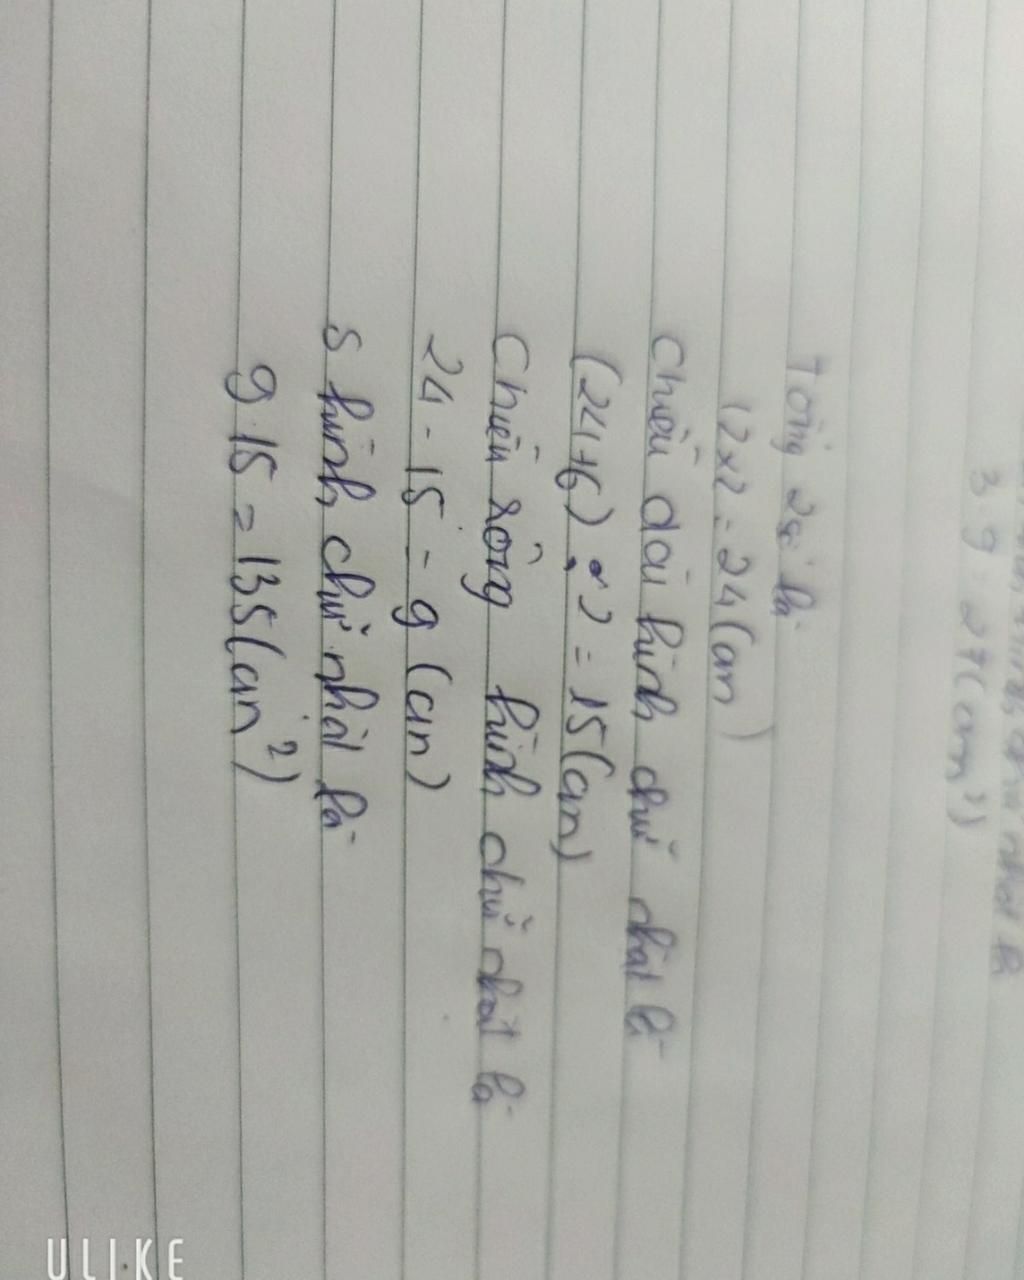 3 9 = 27 (cm²)
Tổng 2 số là
12 x 2 = 24 (cm)
Chiều dài hình chữ nhật là
(24 + 6) : 2 = 15 (cm)
Chiều rộng hình chữ nhật là
24 - 15 = 9 (cm)
S hình chữ nhật là
9.15 = 135 (cm²)
ULIKE